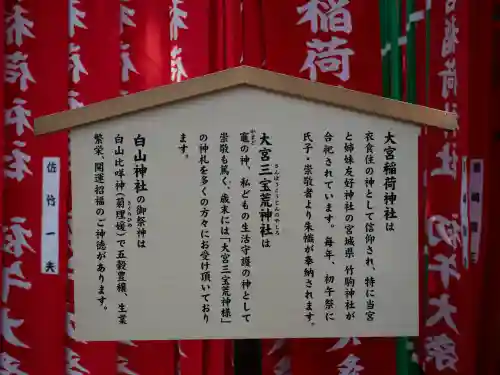 大宮稲荷神社は
衣食住の神として信仰され、特に当宮
と姉妹友好神社の宮城県 竹駒神社が
合祀されています。毎年、初午祭に
氏子・崇敬者より朱幟が奉納されます。
大宮三宝荒神社は
さんぽうこうじんのやしろ
竈の神、私どもの生活守護の神として
かまど
崇敬も篤く、歳末には「大宮三宝荒神様」
の神札を多くの方々にお受け頂いており
ます。
白山神社の御祭神は
白山比咩神(菊理媛)で五穀豊穣、生業
くくりひめ
繁栄、開運招福のご神徳があります。
佐竹一夫
稲荷